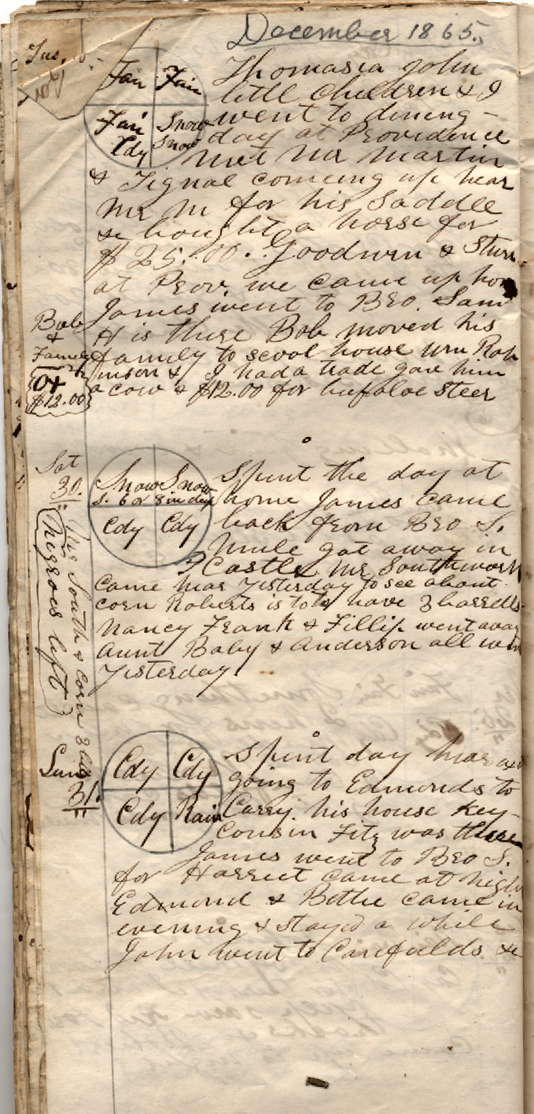 December 1865.
Fair Fair
Fair Snow
Cdy Snow
Thomasia John
little children & I
went to dining-
day at Providence
Met Mr Martin
& Tignal comeing up near
Mr M for his Saddle
& bought a horse for
$25.00. Goodwin &
at Prov. we came up
James went to Bro. Sam
& is there Bob moved his
family to scool house Wm Rob
inson & I had a trade gave him
a cow & $12.00 for bufaloe steer
Bob
&
Family
Ox
$12.00
Sat
30.
Snow Snow
S. 6 or 8 in deep
Cdy Cdy
Spent the day at
home James came
back from Bro S.
Mule got away in
Castle Mr Southworth
came hear Yesterday to see about
corn Roberts is to have 3 barrells
Nancy Frank & Fillip went away
Aunt Baby & Anderson all went
Yesterday
Mr South & corn 3 bls
Negroes left
Sun
31.
Cdy Cdy
Cdy Rain
Spent day hear
going to Edmonds to
Carry his house Key-
Cousin Fitz was there
James went to Bro S.
for Harriet came at night
Edmond & Bettie came in
evening & stayed a while
John went to Canefields &